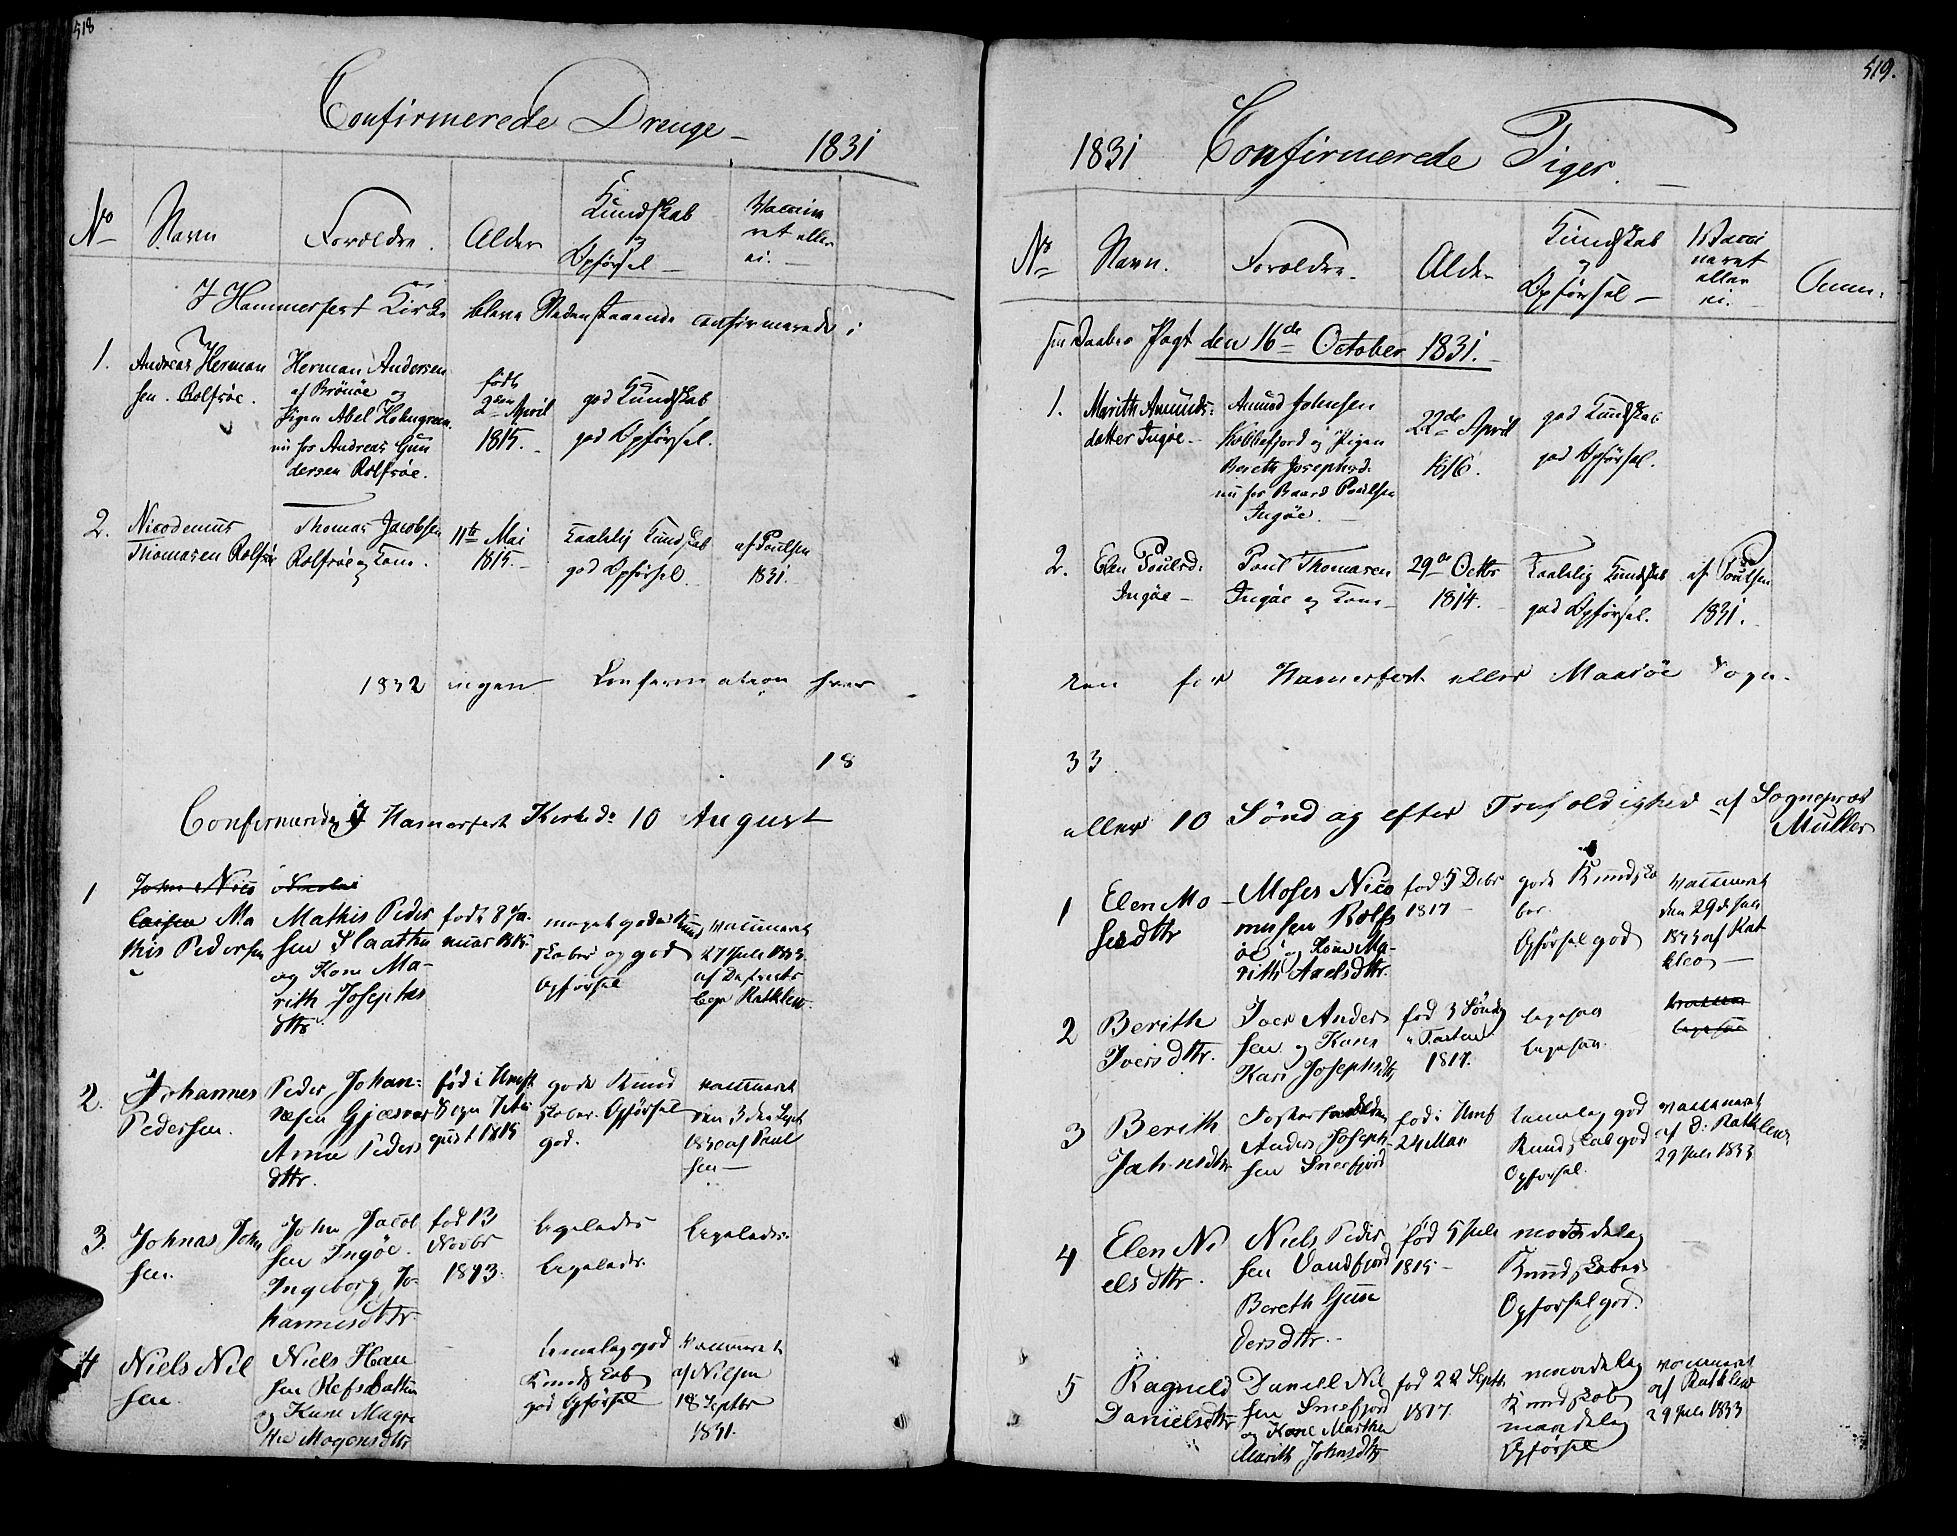 518
Confirmerede Drenge
1831
No
Navn
Forældre.
Alder
Kundskab
og
Opførsel
Vaccine
ret eller
ei.
I Hammerfest Kirke bleve Nedenstaaende confirmerede
1.
Andreas Herman
sen. Rolfsøe.
Herman Andersen
af Brönöe og
Pigen Abel Holmgreen
nu hos Andreas Gun
dersen Rolfsøe.
födt
2den April
1815.
god Kundskab
god Opførsel.
2.
Nicodemus
Thomasen Rolfsøe
Thomas Jacobsen
Rolfsøe og Kone.
11te Mai
1815.
taalelig Kundskab
god Opførsel.
af Poulsen
1831.
1832 ingen Confirmation
18
Confirmerede i Hamerfest Kirke d. 10 August
1
Johan Nico
laisen Ma
this Pedersen
Nicolai
Mathis Peder
sen Slaatten
og Kone Ma-
rith Josephs
dttr
födt 8 Ja-
nuar 1815.
meget gode Kund
skaber og god
Opførsel
vaccineret
27 Juli 1833
af Districts
læge Rathklew.
2.
Johannes
Pedersen.
Peder Johan-
nesen Gjæsvær
Anne Peders
dttr.
fød i Hmft
Sogn 7 Au
gust 1815
gode Kund
skaber. Opførsel
god.
vaccineret
den 3den Sept
1830 af Paul
sen
3.
Johnas John
sen.
John Jacob
sen Ingöe.
Ingeborg Jo-
hannesdttr.
fød 13
Novbr
1813.
Ligeledes
Ligeledes.
Ligeledes.
4
Niels Niel
sen.
Niels Han
sen Refsbotten
og Kone Magre
the Mogensdttr
temelig god
Kundskab
god Opførsel
Vaccineret
af Nilsen
18 Septbr
1831.
519.
1831 Confirmerede Piger.
No
Navn.
Forældre
Alder
Kundskab
og
Opførsel
Vacci
neret
eller
ei.
Anm:
Pagt den 16de October 1831.
1.
Marith Amunds:
datter Ingøe
Amund Johnsen
Kobbefjord og Pigen
Bereth Josephsd:
nu hos Baard Poulsen
Ingøe.
22de April
1816.
god Kundskab
god Opførsel.
2.
Elen Poulsd:
Ingøe
Poul Thomasen
Ingøe og Kone
29de Octbr
1814.
Taalelig Kundskab
god Opførsel.
af Poulsen
1831.
ken for Hamerfest eller Maasöe Sogn.
33.
eller 10 Söndag efter Trefoldighed af Sognepræst
Müller
1
Elen Mo-
sesdttr
Moses Nico
musen Rolfs
öe og Kone Ma-
rith Axelsdttr.
fød 5 Debr
1817
gode Kundska
ber.
Opførsel god
vaccineret
den 29de Juli
1833 af Rat
klew
2
Berith
Iversdttr.
Iver Ander
sen og Kone
Kari Josephsdttr
fød 3 Sönd
i Fasten
1817.
Ligesaa
Ligesaa
Ligesaa
3
Berith
Johnsdttr
Fosterforældre
Anders Joseph-
sen Snefjord
fød i Hmf
24 Mai
temelig god
Kundskab god
Opførsel.
vaccineret
af D. Rathklew
29 Juli 1833
4
Elen Ni
elsdttr.
Niels Peder
sen Vandfjord
Bereth Gun
dersdttr.
fød 5 Juli
1815
maadelig
Kundskaber
Opførsel god.
5
Ragnild
Danielsdttr
Daniel Nil
sen Snefjord
og Kone Marthe
Marith Johnsdttr
fød 22 Septbr
1817.
maadelig
Kundskab
maadelig
Opførsel
vaccineret
af Rathklew
29 Juli 1833